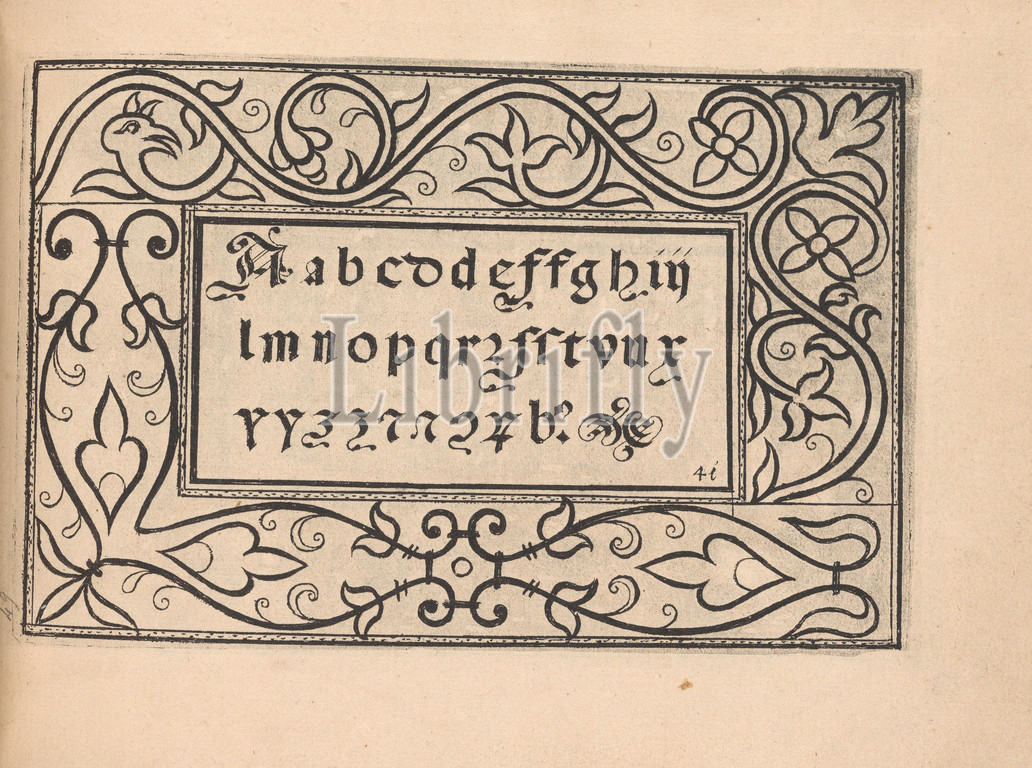 A a b c d d e f f g h i ij
l m n o p q r z ſ s t v u x
y y z z
4i
Librifly